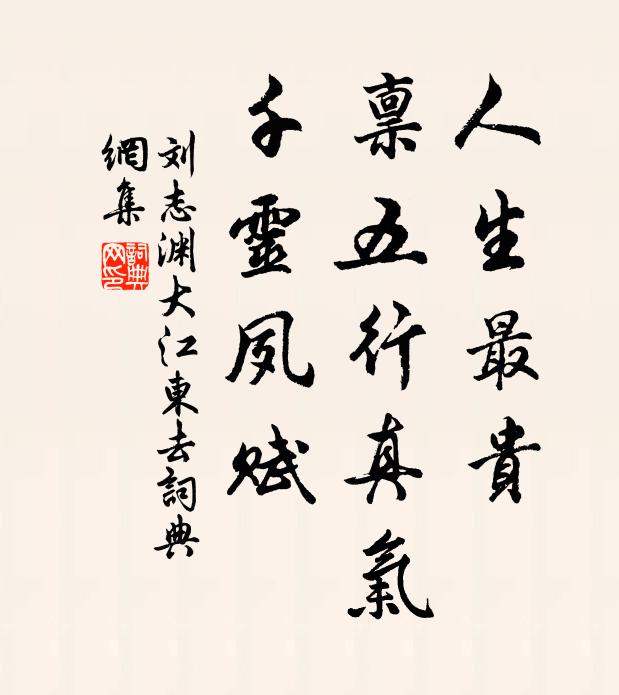 人生最貴
禀五行真氣
千靈夙赋
刘志渊大江東去詞典
網集
詞典
网印